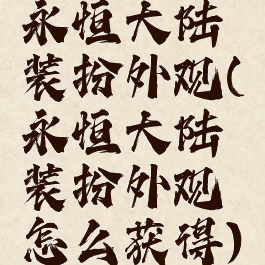 永恒大陆
装扮外观(
永恒大陆
装扮外观
怎么获得)